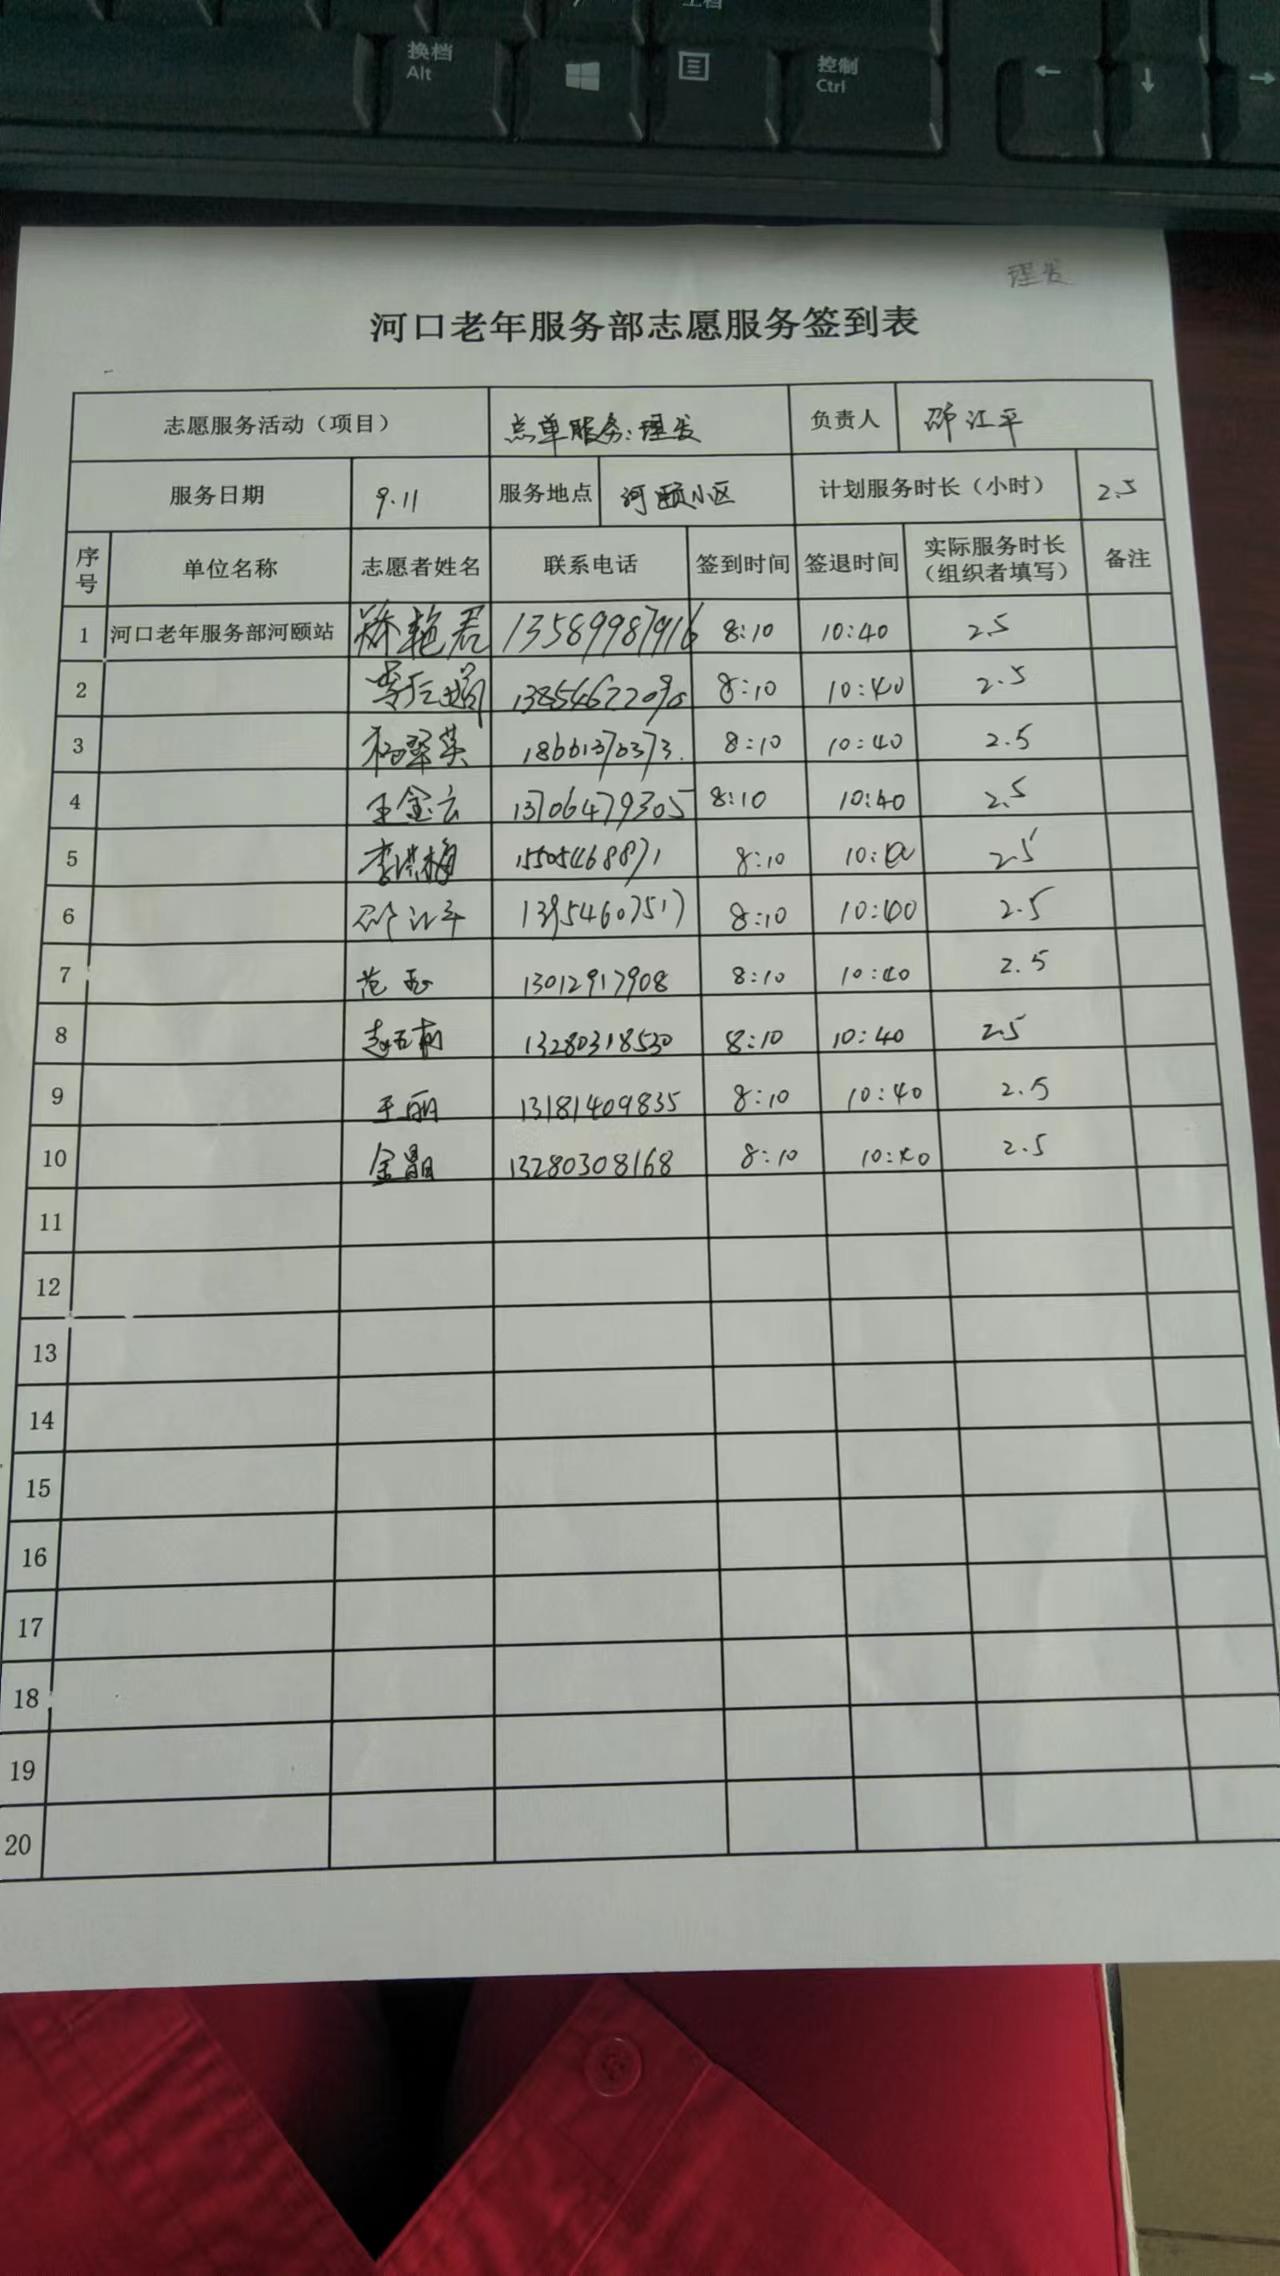 换档
Alt
控制
Ctrl
理发
河口老年服务部志愿服务签到表
志愿服务活动（项目） 点单服务：理发 负责人 邵江平
服务日期 9.11 服务地点 河颐小区 计划服务时长（小时） 2.5
序号 单位名称 志愿者姓名 联系电话 签到时间 签退时间 实际服务时长（组织者填写） 备注
1 河口老年服务部河颐站 艳君 13589987916 8:10 10:40 2.5
2 8:10 10:40 2.5
3 杨翠英 8:10 10:40 2.5
4 王金云 13706479305 8:10 10:40 2.5
5 李洪梅 15505468871 8:10 2.5
6 邵江平 13954607517 8:10 10:40 2.5
7 范玉 13012917908 8:10 10:40 2.5
8 13280318530 8:10 10:40 2.5
9 王丽 13181409835 8:10 10:40 2.5
10 金晶 13280308168 8:10 10:40 2.5
11
12
13
14
15
16
17
18
19
20